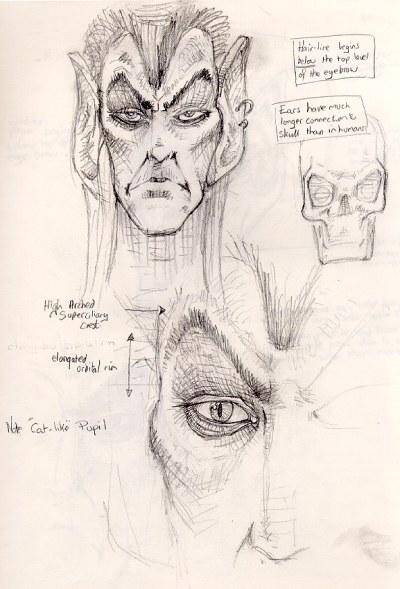 Hair-line begins
below the top level
of the eyebrow
Ears have much
longer connection to
skull than in humans
High Arched
Superciliary
Crest
elongated
orbital rim
Note "Cat-like" Pupil